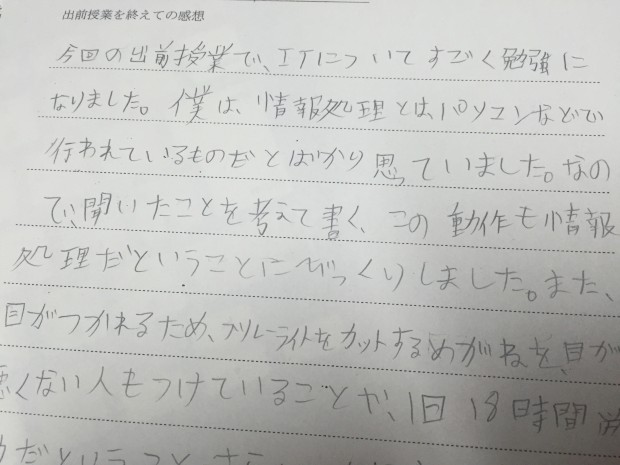 出前授業を終えての感想
今回の出前授業で、ITについてすごく勉強に
なりました。僕は、情報処理とは、パソコンなどで
行われているものだとばかり思っていました。なの
で、聞いたことを考えて書く、この動作も情報
処理だということにびっくりしました。また、
目がつかれるため、ブルーライトをカットするめがねを、目が
悪くない人もつけていることや、1日18時間労
だということ